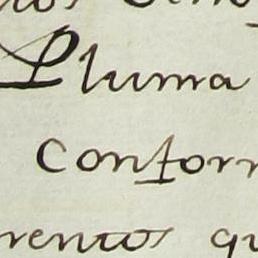 Pluma
Conforr
rentos qu